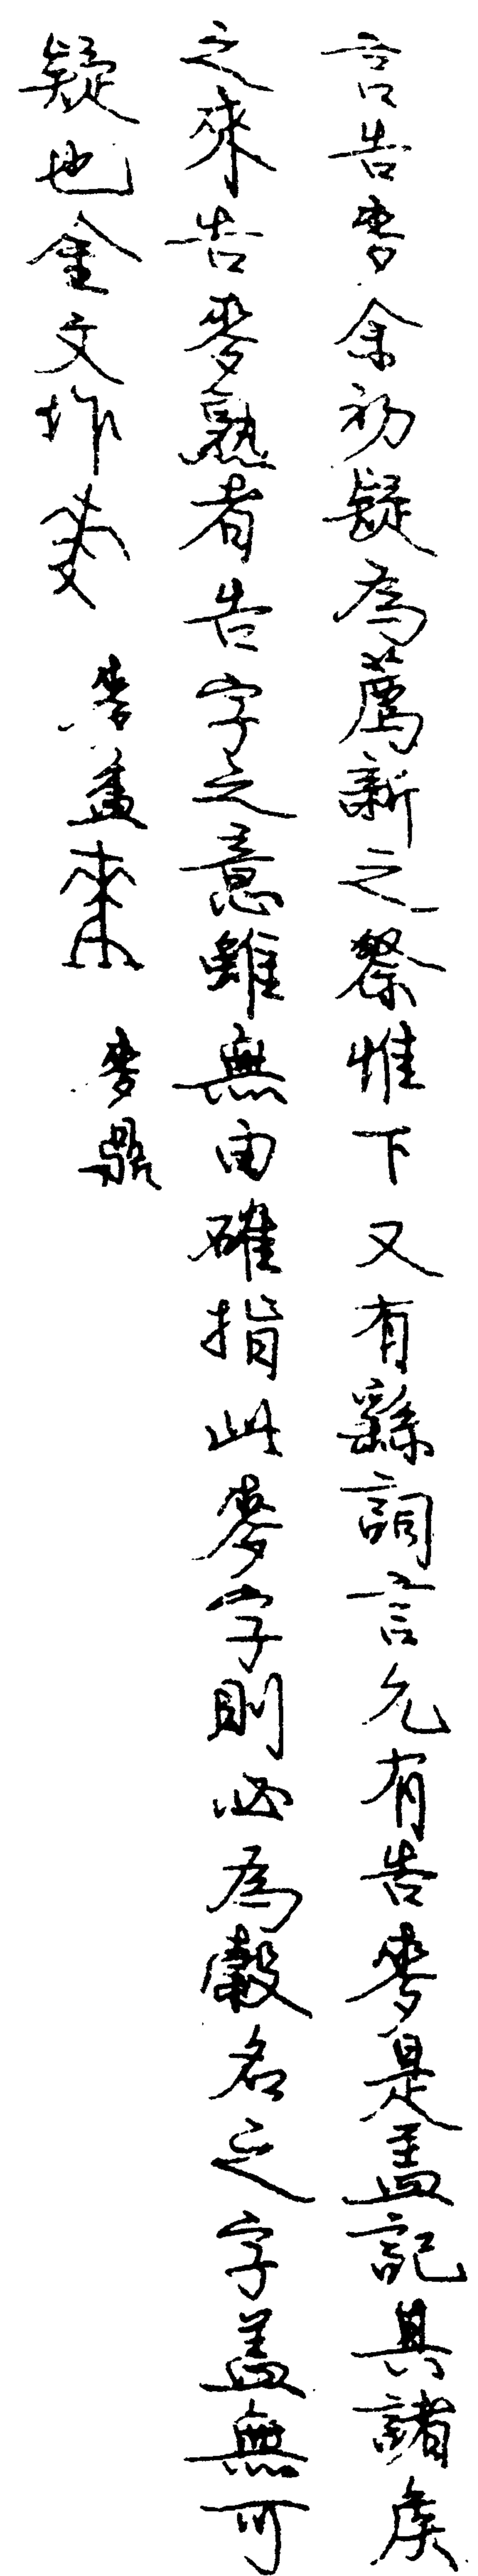 言告麥余初疑為薦新之祭惟下又有繇詞言允有告麥是蓋記其諸矦
之來告麥熟者告字之意雖無由確指此麥字則必為穀名之字蓋無可
疑也金文作麥麥盉來麥鼎